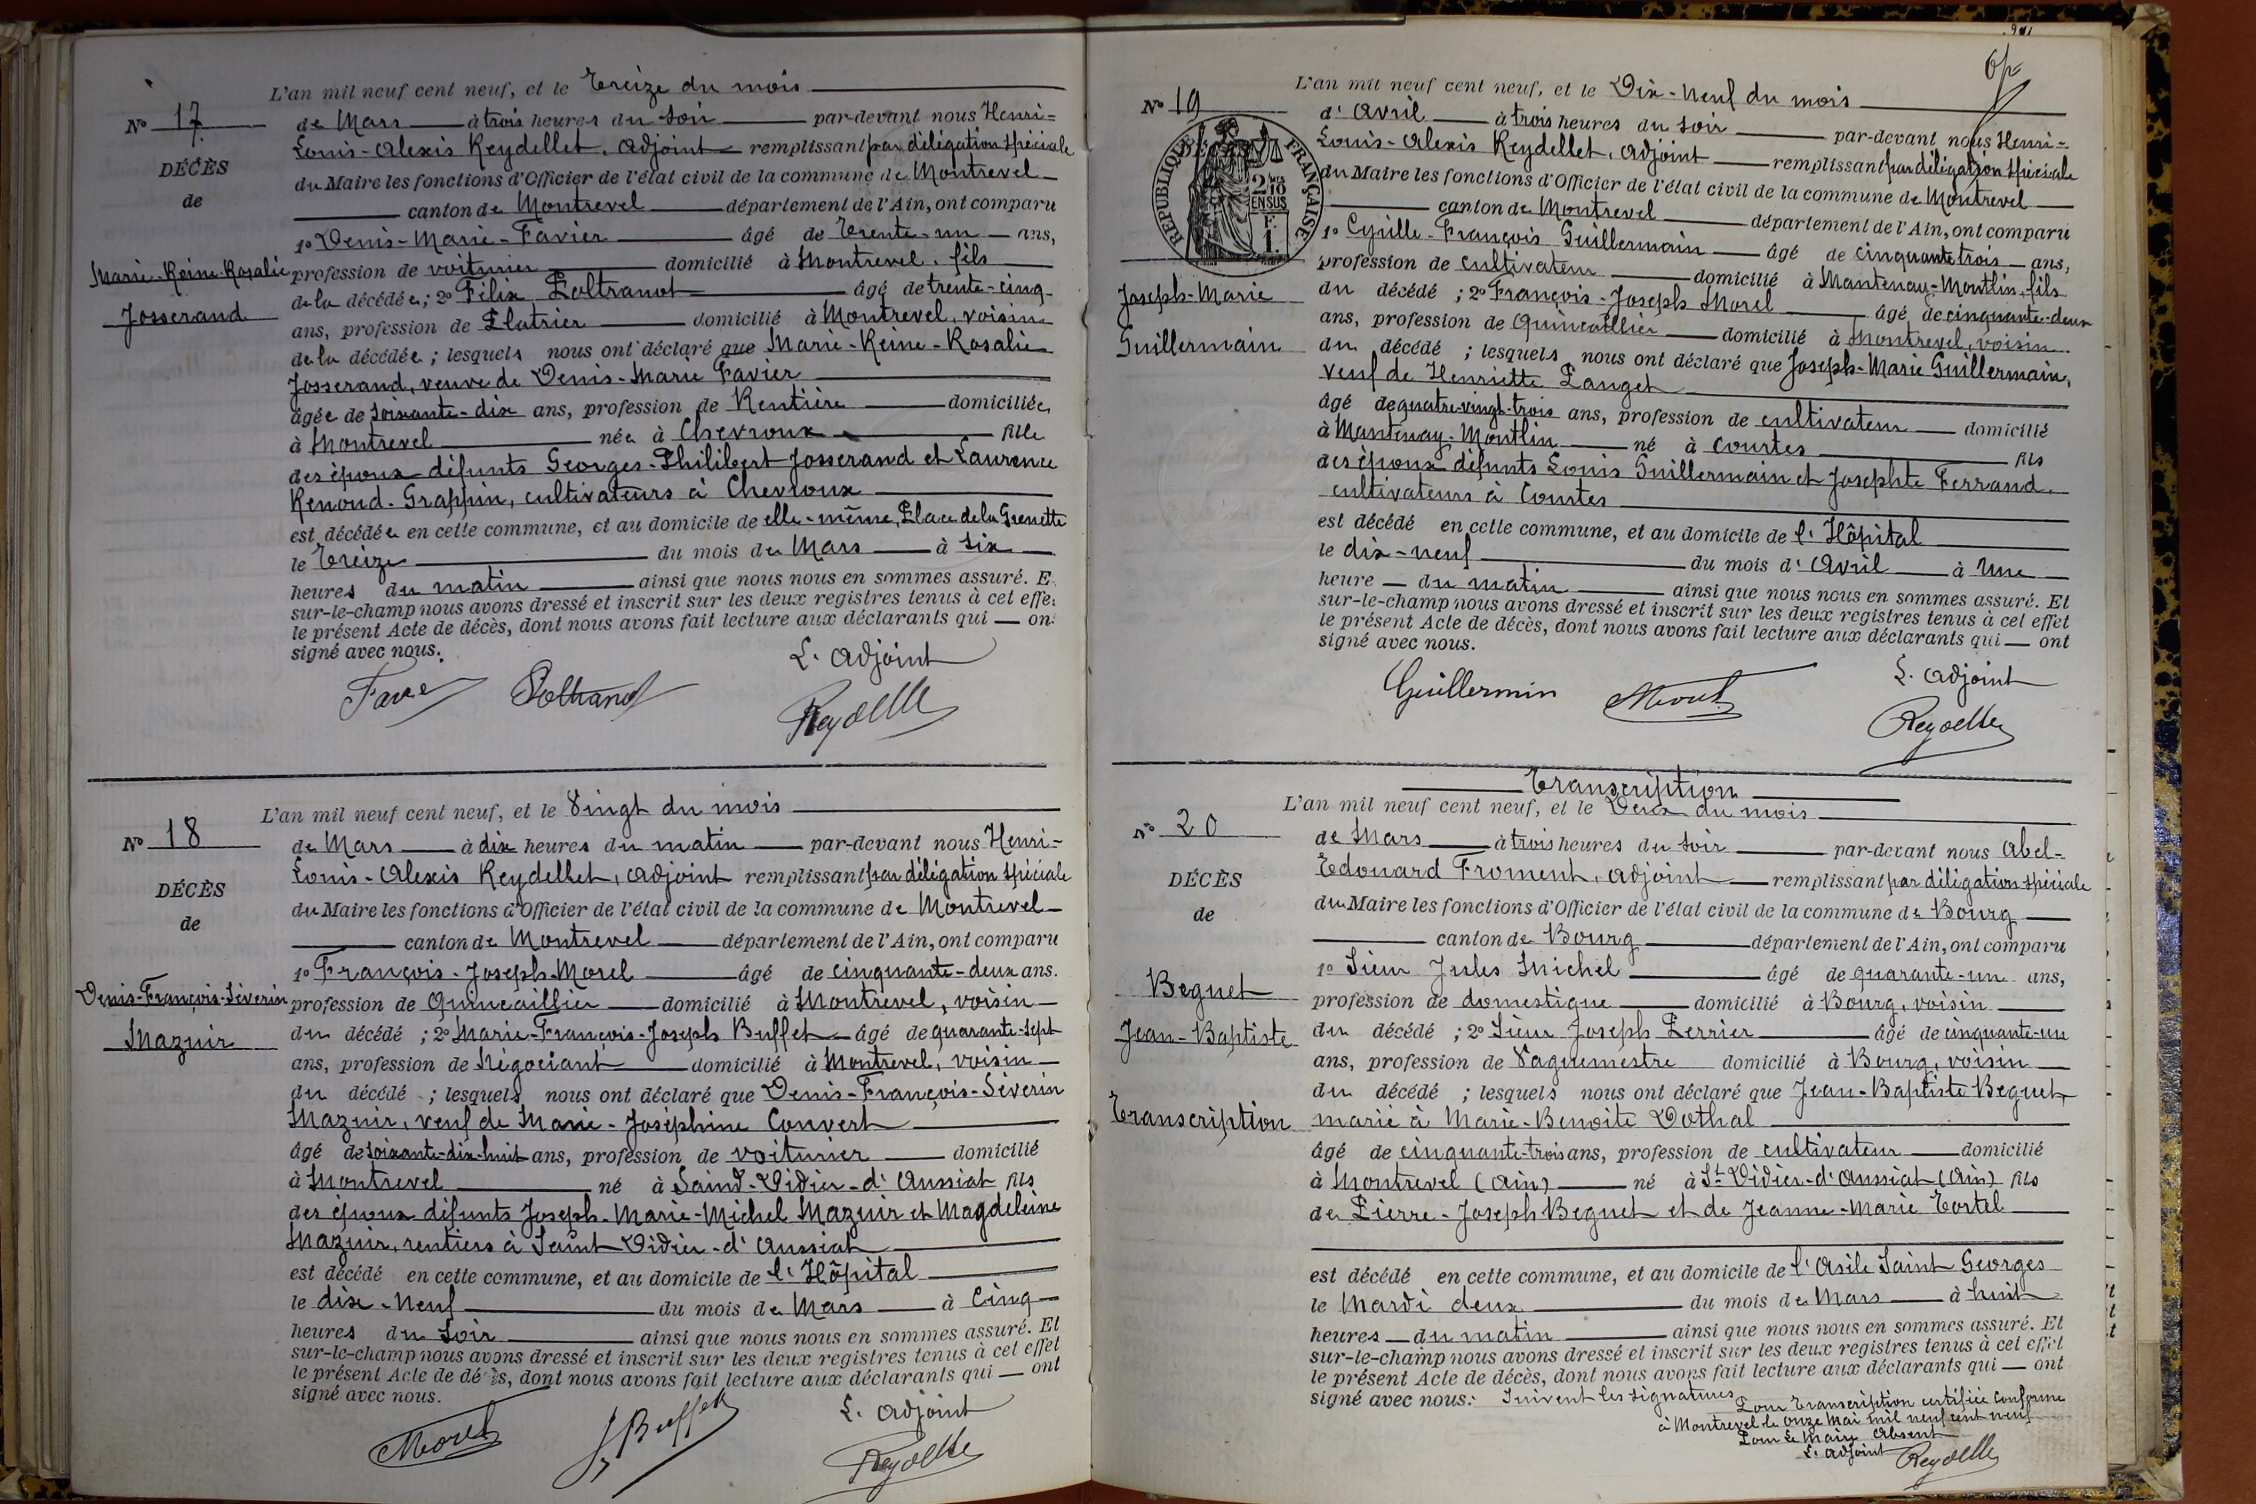 L'an mil neuf cent neuf, et le Treize du mois
No 17
de Mars à trois heures du soir par-devant nous Henri-
Louis-Alexis Reydellet, adjoint remplissant par délégation spéciale
DÉCÈS
du Maire les fonctions d'Officier de l'état civil de la commune de Montrevel
de
canton de Montrevel département de l'Ain, ont comparu
1o Denis-Marie-Favier âgé de Trente-un ans,
Marie-Reine-Rosalie
profession de voiturier domicilié à Montrevel, fils
Josserand
de la décédée; 2o Félix Poltranot âgé de trente-cinq
ans, profession de Platrier domicilié à Montrevel, voisin
de la décédée; lesquels nous ont déclaré que Marie-Reine-Rosalie
Josserand, veuve de Denis-Marie Favier
âgée de soixante-dix ans, profession de Rentière domiciliée
à Montrevel née à Chevroux fille
des époux défunts Georges-Philibert Josserand et Laurence
Renoud-Grappin, cultivateurs à Chevroux
est décédée en cette commune, et au domicile de elle-même, Place de la Grenette
le Treize du mois de Mars à six
heures du matin ainsi que nous nous en sommes assuré. E
sur-le-champ nous avons dressé et inscrit sur les deux registres tenus à cet effe
le présent Acte de décès, dont nous avons fait lecture aux déclarants qui on
signé avec nous.
L'adjoint
Favier Poltranot
Reydellet
L'an mil neuf cent neuf, et le Vingt du mois
No 18
de Mars à dix heures du matin par-devant nous Henri-
Louis-Alexis Reydellet, adjoint remplissant par délégation spéciale
DÉCÈS
du Maire les fonctions d'Officier de l'état civil de la commune de Montrevel
de
canton de Montrevel département de l'Ain, ont comparu
1o François-Joseph-Morel âgé de cinquante-deux ans.
Denis-François-Séverin
profession de Quincaillier domicilié à Montrevel, voisin
Mazuir
du décédé; 2o Marie-François-Joseph Buffet âgé de quarante-sept
ans, profession de Négociant domicilié à Montrevel, voisin
du décédé; lesquels nous ont déclaré que Denis-François-Séverin
Mazuir, veuf de Marie-Joséphine Convert
âgé de soixante-dix-huit ans, profession de voiturier domicilié
à Montrevel né à Saint-Didier-d'Aussiat fils
des époux défunts Joseph-Marie-Michel Mazuir et Magdeleine
Mazuir, rentiers à Saint Didier-d'Aussiat
est décédé en cette commune, et au domicile de l'Hôpital
le dix-neuf du mois de Mars à Cinq
heures du soir ainsi que nous nous en sommes assuré. Et
sur-le-champ nous avons dressé et inscrit sur les deux registres tenus à cet effet
le présent Acte de décès, dont nous avons fait lecture aux déclarants qui ont
signé avec nous.
L'adjoint
Morel J Buffet
Reydellet
L'an mil neuf cent neuf, et le Dix-neuf du mois
No 19
d'Avril à trois heures du soir par-devant nous Henri-
Louis-Alexis Reydellet, adjoint remplissant par délégation spéciale
RÉPUBLIQUE FRANÇAISE
2/10 EN SUS
F. 1.
du Maire les fonctions d'Officier de l'état civil de la commune de Montrevel
canton de Montrevel département de l'Ain, ont comparu
1o Cyrille-François Guillermain âgé de cinquante trois ans,
profession de cultivateur domicilié à Mantenay-Montlin, fils
Joseph-Marie
du décédé; 2o François-Joseph Morel âgé de cinquante-deux
Guillermain
ans, profession de Quincaillier domicilié à Montrevel, voisin
du décédé; lesquels nous ont déclaré que Joseph-Marie Guillermain,
veuf de Henriette Panget
âgé de quatre-vingt-trois ans, profession de cultivateur domicilié
à Mantenay-Montlin né à Courtes fils
des époux défunts Louis Guillermain et Josephte Ferrand,
cultivateurs à Courtes
est décédé en cette commune, et au domicile de l'Hôpital
le dix-neuf du mois d'Avril à Une
heure du matin ainsi que nous nous en sommes assuré. Et
sur-le-champ nous avons dressé et inscrit sur les deux registres tenus à cet effet
le présent Acte de décès, dont nous avons fait lecture aux déclarants qui ont
signé avec nous.
L'adjoint
Guillermin Morel
Reydellet
Transcription
L'an mil neuf cent neuf, et le Deux du mois
No 20
de Mars à trois heures du soir par-devant nous Abel-
Edouard Froment, adjoint remplissant par délégation spéciale
DÉCÈS
du Maire les fonctions d'Officier de l'état civil de la commune de Bourg
de
canton de Bourg département de l'Ain, ont comparu
1o Sieur Jules Michel âgé de quarante-un ans,
Beguet
profession de domestique domicilié à Bourg, voisin
Jean-Baptiste
du décédé; 2o Sieur Joseph Perrier âgé de cinquante-un
ans, profession de Vaguemestre domicilié à Bourg, voisin
du décédé; lesquels nous ont déclaré que Jean-Baptiste Beguet
Transcription
marié à Marie-Benoite Dothal
âgé de cinquante-trois ans, profession de cultivateur domicilié
à Montrevel (Ain) né à St Didier-d'Aussiat (Ain) fils
de Pierre-Joseph Beguet et de Jeanne-Marie Tortel
est décédé en cette commune, et au domicile de l'Asile Saint Georges
le Mardi deux du mois de Mars à huit
heures du matin ainsi que nous nous en sommes assuré. Et
sur-le-champ nous avons dressé et inscrit sur les deux registres tenus à cet effet
le présent Acte de décès, dont nous avons fait lecture aux déclarants qui ont
signé avec nous: Suivent les signatures
Pour Transcription certifiée conforme
à Montrevel le onze Mai mil neuf cent neuf
Pour Le Maire Absent
L'adjoint Reydellet